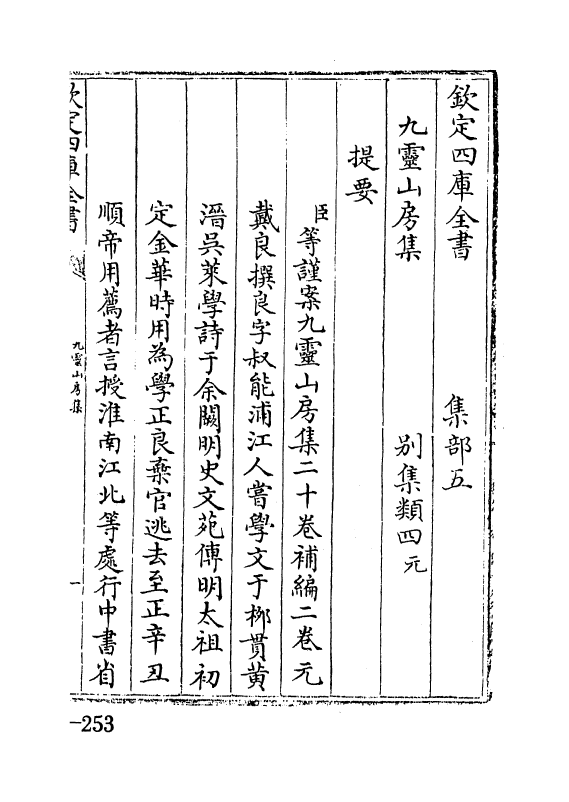 欽定四庫全書　　　集部五
九靈山房集　　　別集類四元
提要
臣等謹案九靈山房集二十卷補編二卷元
戴良撰良字叔能浦江人嘗學文于栁貫黄
溍吳萊學詩于余闕明史文苑傳明太祖初
定金華時用為學正良棄官逃去至正辛丑
順帝用薦者言授淮南江北等處行中書省
欽定四庫全書
九靈山房集
一
-253